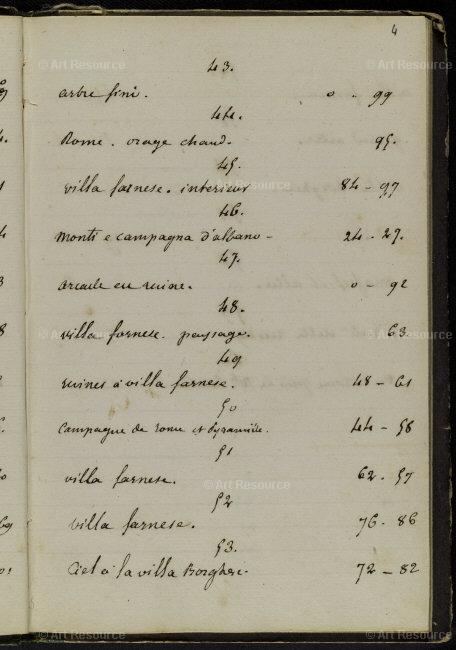 4
43.
arbre fini. 0 - 99
44.
Rome. orage chaud. 95.
45.
villa farnese. interieur 84 - 97
46.
monti e campagna d'albano - 24 - 27.
47.
arcade en ruine. 0 - 92
48.
villa farnese. paysage. 63
49
ruines a villa farnese. 48 - 61
50
Campagne de rome et 44 - 58
51
villa farnese. 62 - 57
52
villa farnese. 76 - 86
53.
Ciel à la villa Borghese. 72 - 82
© Art Resource